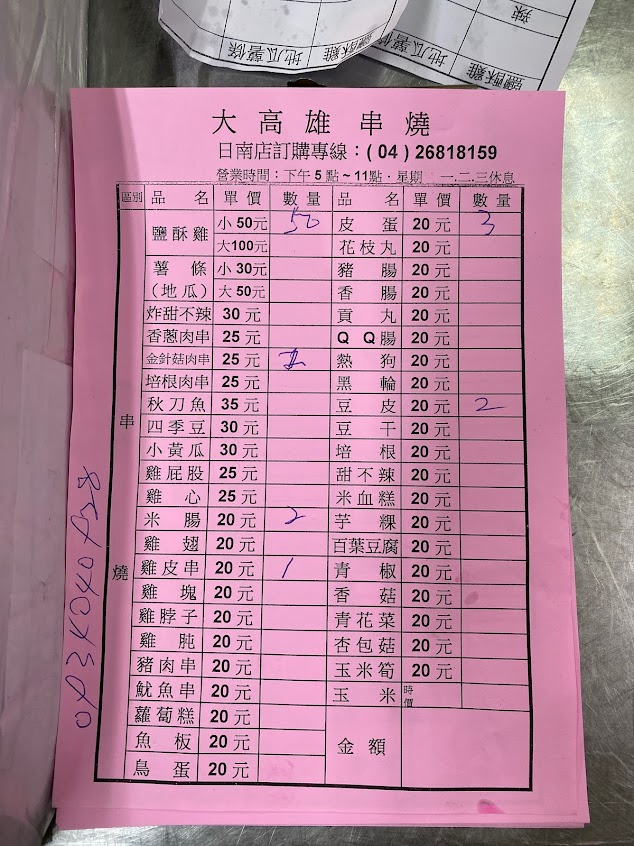 辣
地瓜薯條
鹽酥雞
地瓜薯條
鹽酥雞
大高雄串燒
日南店訂購專線：(04) 26818159
營業時間：下午5點~11點．星期 一.二.三休息
區別 品名 單價 數量 品名 單價 數量
串燒
鹽酥雞 小50元 50 皮蛋 20元 3
大100元 花枝丸 20元
薯條 小30元 豬腸 20元
（地瓜） 大50元 香腸 20元
炸甜不辣 30元 貢丸 20元
香蔥肉串 25元 QQ腸 20元
金針菇肉串 25元 熱狗 20元
培根肉串 25元 黑輪 20元
秋刀魚 35元 豆皮 20元 2
四季豆 30元 豆干 20元
小黃瓜 30元 培根 20元
雞屁股 25元 甜不辣 20元
雞心 25元 米血糕 20元
米腸 20元 2 芋粿 20元
雞翅 20元 百葉豆腐 20元
雞皮串 20元 1 青椒 20元
雞塊 20元 香菇 20元
雞脖子 20元 青花菜 20元
雞肫 20元 杏包菇 20元
豬肉串 20元 玉米筍 20元
魷魚串 20元 玉米 時價
蘿蔔糕 20元 金額
魚板 20元
鳥蛋 20元